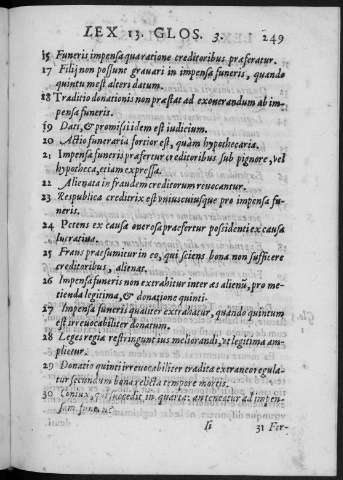 LEX 13. GLOS. 3. 249
15 Funeris impensa qua ratione creditoribus præferatur.
17 Filij non possunt grauari in impensa funeris, quando
quintum est alteri datum.
18 Traditio donationis non præstat ad exonerandum ab im-
pensa funeris.
19 Dati, & promissi idem est iudicium.
20 Actio funeraria fortior est, quàm hypothecaria.
21 Impensa funeris præfertur creditoribus sub pignore, vel
hypotheca, etiam expressa.
22 Alienata in fraudem creditorum reuocantur.
23 Respublica creditrix est vniuscuiusque pro impensa fu-
neris.
24 Petens ex causa onerosa praefertur posidenti ex causa
lucratiua.
25 Fraus praesumitur in eo, qui sciens bona non sufficere
creditoribus, alienat.
26 Impensa funeris non extrahitur inter æs alienũ, pro me-
tienda legitima, & donatione quinti.
27 Impensa funeris qualiter extrahatur, quando quintum
est irreuocabiliter donatum.
28 Leges regia restringunt ius meliorandi, vt legitima am-
plietur.
29 Donatio quinti irreuocabiliter tradita extraneo regula-
tur secundum bona relicta tempore mortis.
30 Coniux, succedit in quarta: an teneatur ad impen-
sam funeris
Ii 31 Fer-